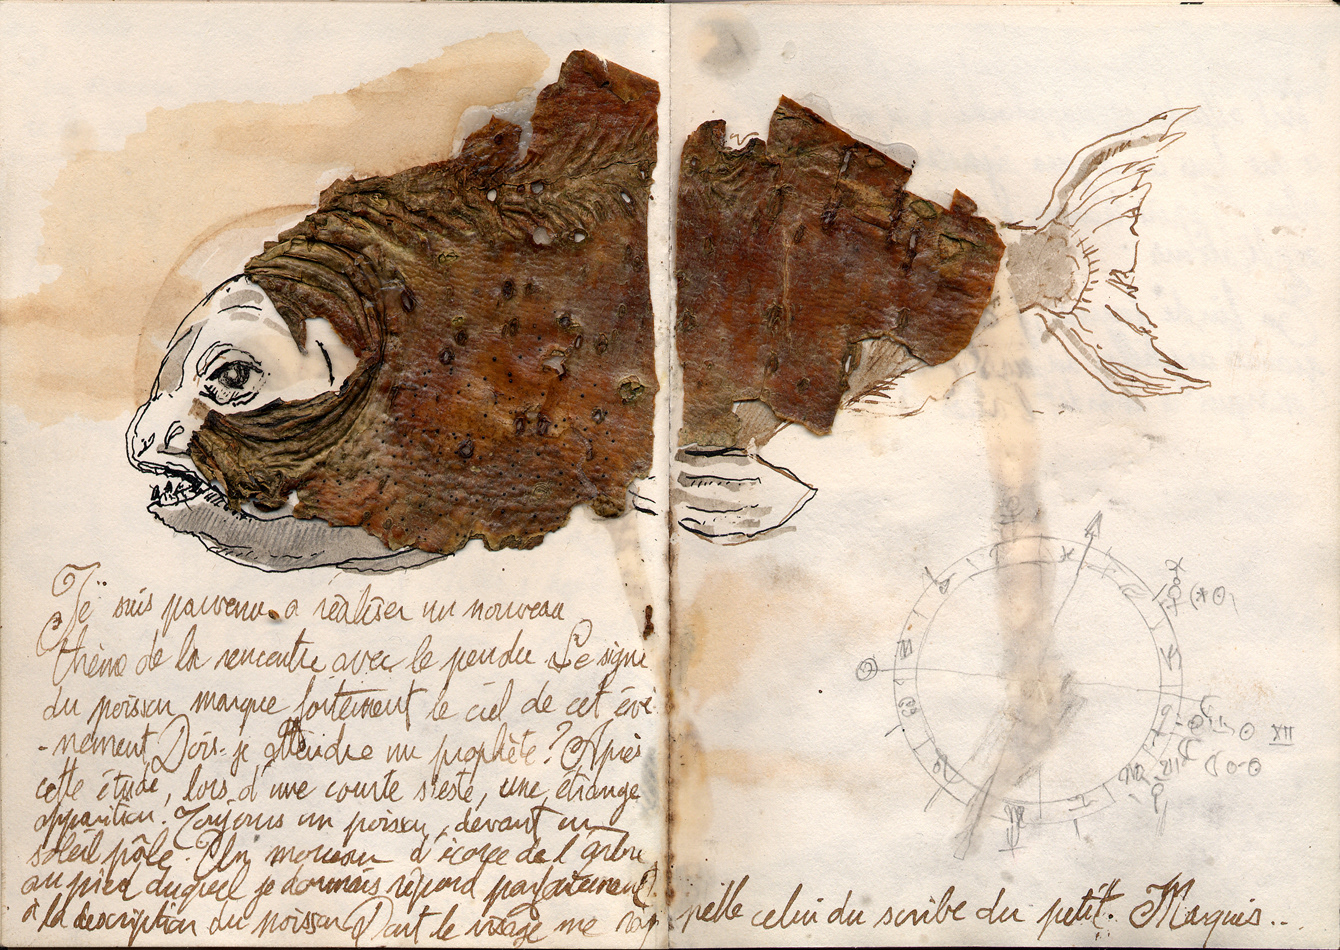 Je suis parvenu a réaliser un nouveau
thème de la rencontre avec le pendu Le signe
du poisson marque fortement le ciel de cet évè
-nement Dois-je attendre un prophète? Après
cette étude, lors d'une courte sieste, une étrange
apparition. Toujours un poisson, devant un
soleil pâle. Un morceau d'écorce de l'arbre
au pied duquel je dormais répond parfaitement
à la description du poisson Dont le visage me rap
pelle celui du scribe du petit Marquis...
XII